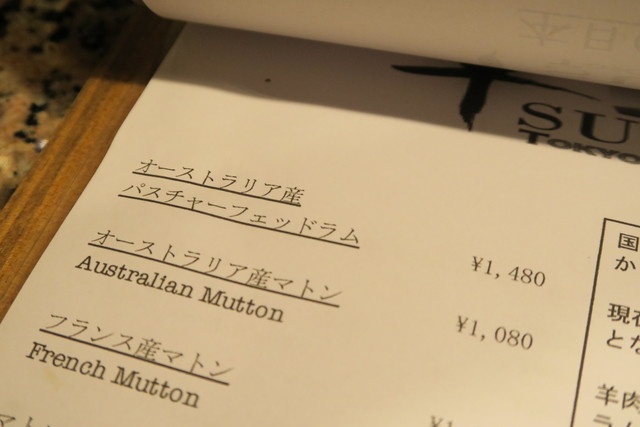 SU
TOKYO
オーストラリア産
パスチャーフェッドラム
¥1,480
オーストラリア産マトン
Australian Mutton
¥1,080
フランス産マトン
French Mutton
国
か
現在
とな
羊肉